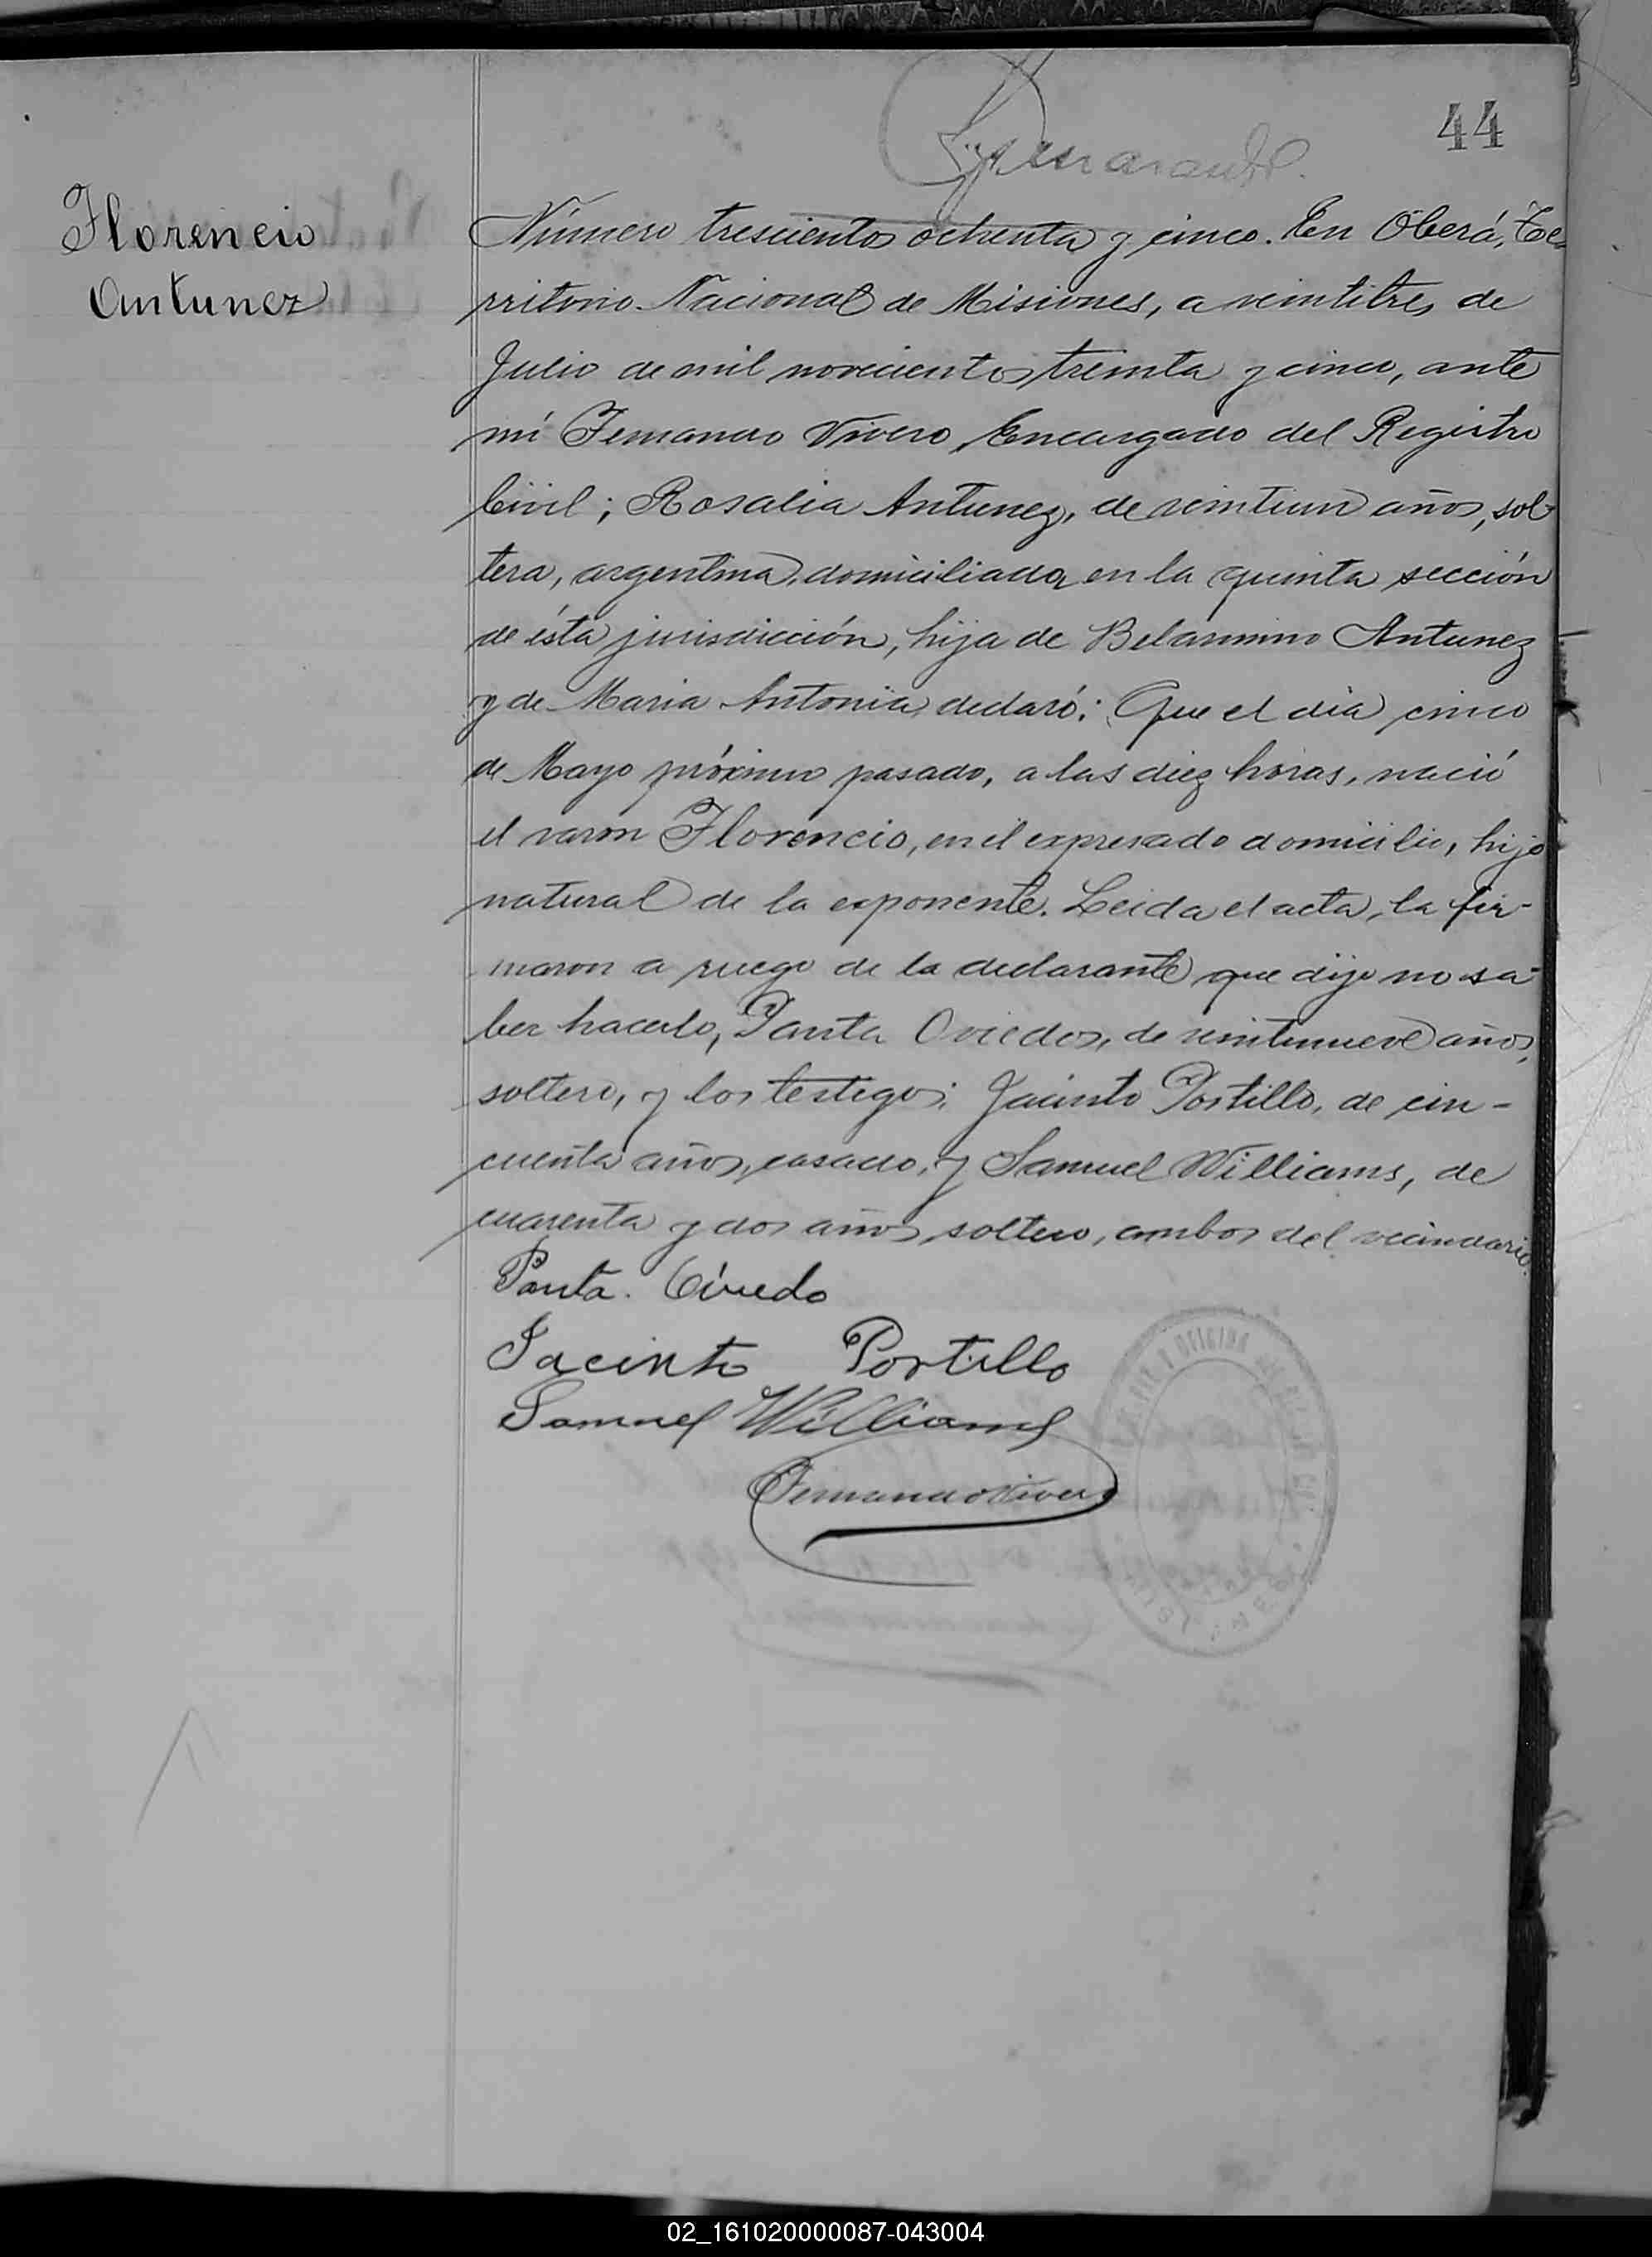 44
Florencio
Antunez
Número trescientos ochenta y cinco. En Oberá, Te-
rritorio Nacional de Misiones, a veintitres de
Julio de mil novecientos treinta y cinco, ante
mí Fernando Vivero Encargado del Registro
Civil; Rosalia Antunez, de veintiun años, sol-
tera, argentina, domiciliada en la quinta sección
de ésta jurisdicción, hija de Belarmino Antunez
y de Maria Antonia, declaró: Que el dia cinco
de Mayo próximo pasado, a las diez horas, nació
el varon Florencio, en el expresado domicilio, hijo
natural de la exponente. Leida el acta, la fir-
maron a ruego de la declarante que dijo no sa-
ber hacerlo, Panta Oviedo, de veintinueve años,
soltero, y los testigos: Jacinto Portillo, de cin-
cuenta años, casado, y Samuel Williams, de
cuarenta y dos años, soltero, ambos del vecindario.
Panta. Oviedo
Jacinto Portillo
Samuel Williams
Fernando Vivero
02_161020000087-043004